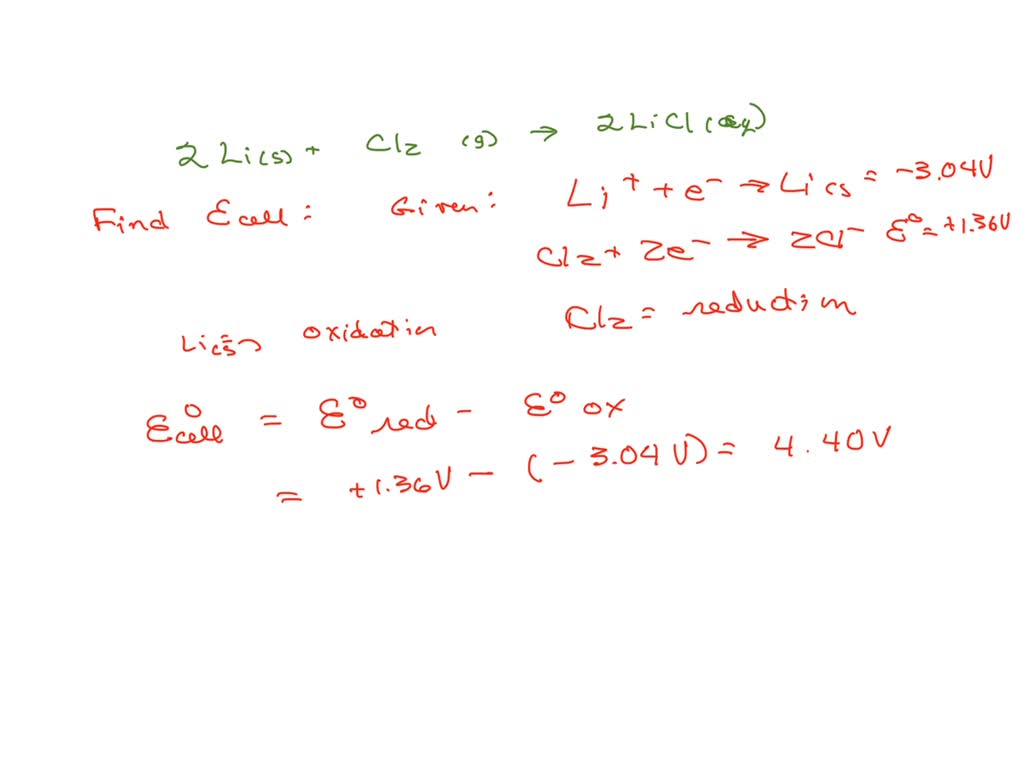 2 Li(s) + Cl2 (g) → 2 LiCl (aq)
Find Ecell: Given: Li+ + e- → Li(s) = -3.04V
Cl2 + 2e- → 2Cl- E° = +1.36V
Li(s) → oxidation Cl2 = reduction
E°cell = E°red - E°ox
= +1.36V - (-3.04V) = 4.40V